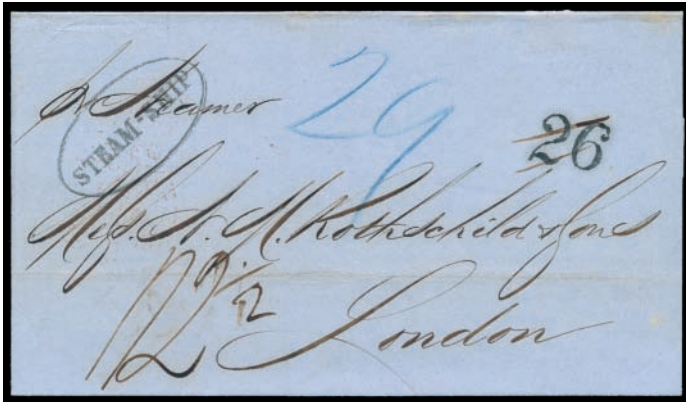 pr Steamer
STEAM-SHIP
29
26
Mess. N. M. Rothschild & Sons
1/2½
London